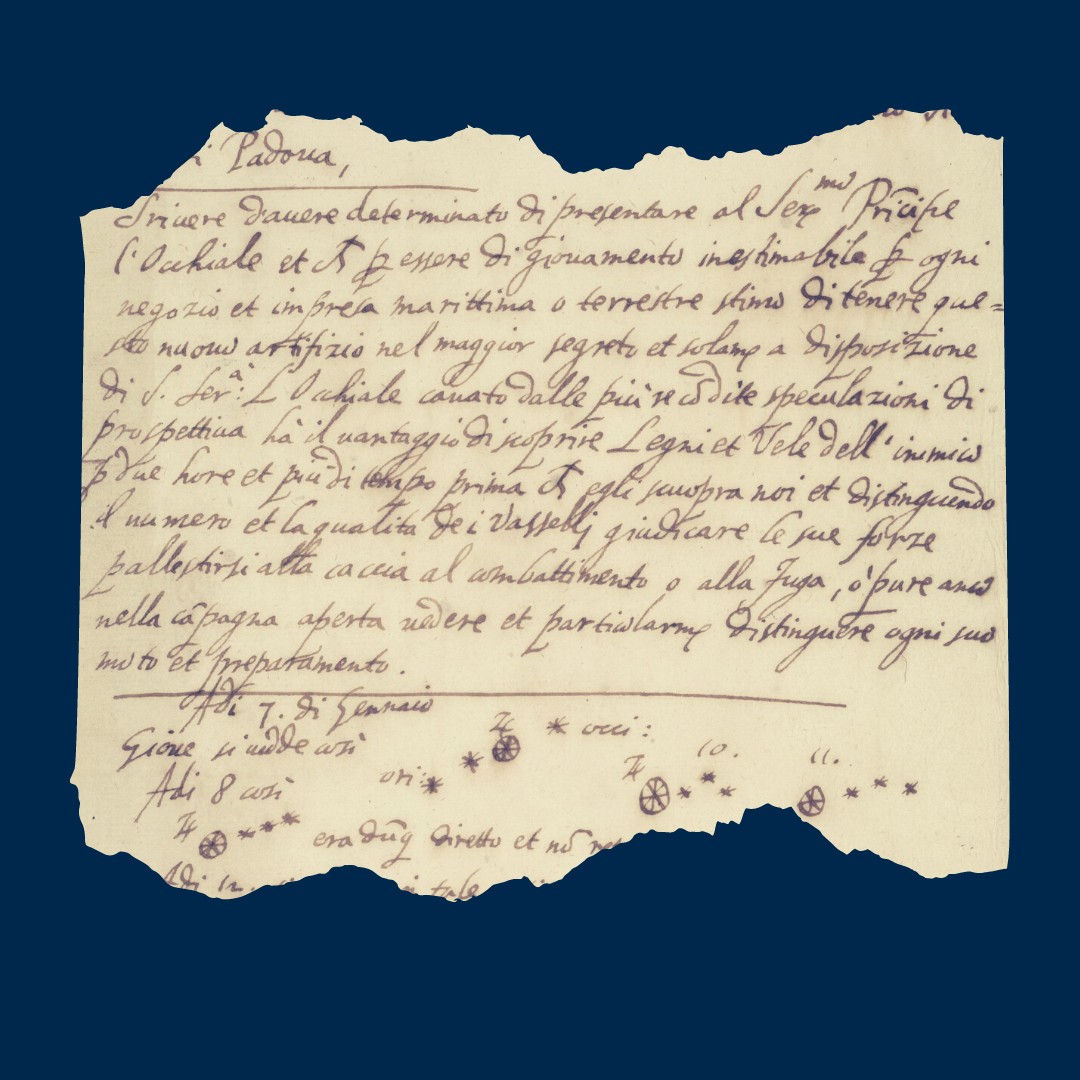 Padoua,
Sriuere d'auere determinato di presentare al Sermo Prīcipe
l'Occhiale et essere di giouamento inestimabile ogni
negozio et impresa marittima o terrestre stimo di tenere que=
sto nuouo artifizio nel maggior segreto et solam a disposizione
di S. Ser.a L'Occhiale cauato dalle più recōdite speculazioni di
prospettiua hà il uantaggio di scoprire Legni et Vele dell'inimico
due hore et più di tempo prima egli scuopra noi et distinguendo
il numero et la qualità de i Vasselli giudicare le sue forze
pallestirsi alla caccia al combattimento o alla fuga, ò pure anco
nella cāpagna aperta uedere et particolarm distinguere ogni suo
moto et preparamento.
Adi 7. di Gennaio
Gioue si uedde così
ori: * * ♃ * occi:
Adi 8 così
♃ * * * era dūq diretto et nō
10. ♃ * * *
11. * * *
Adi 12. tale